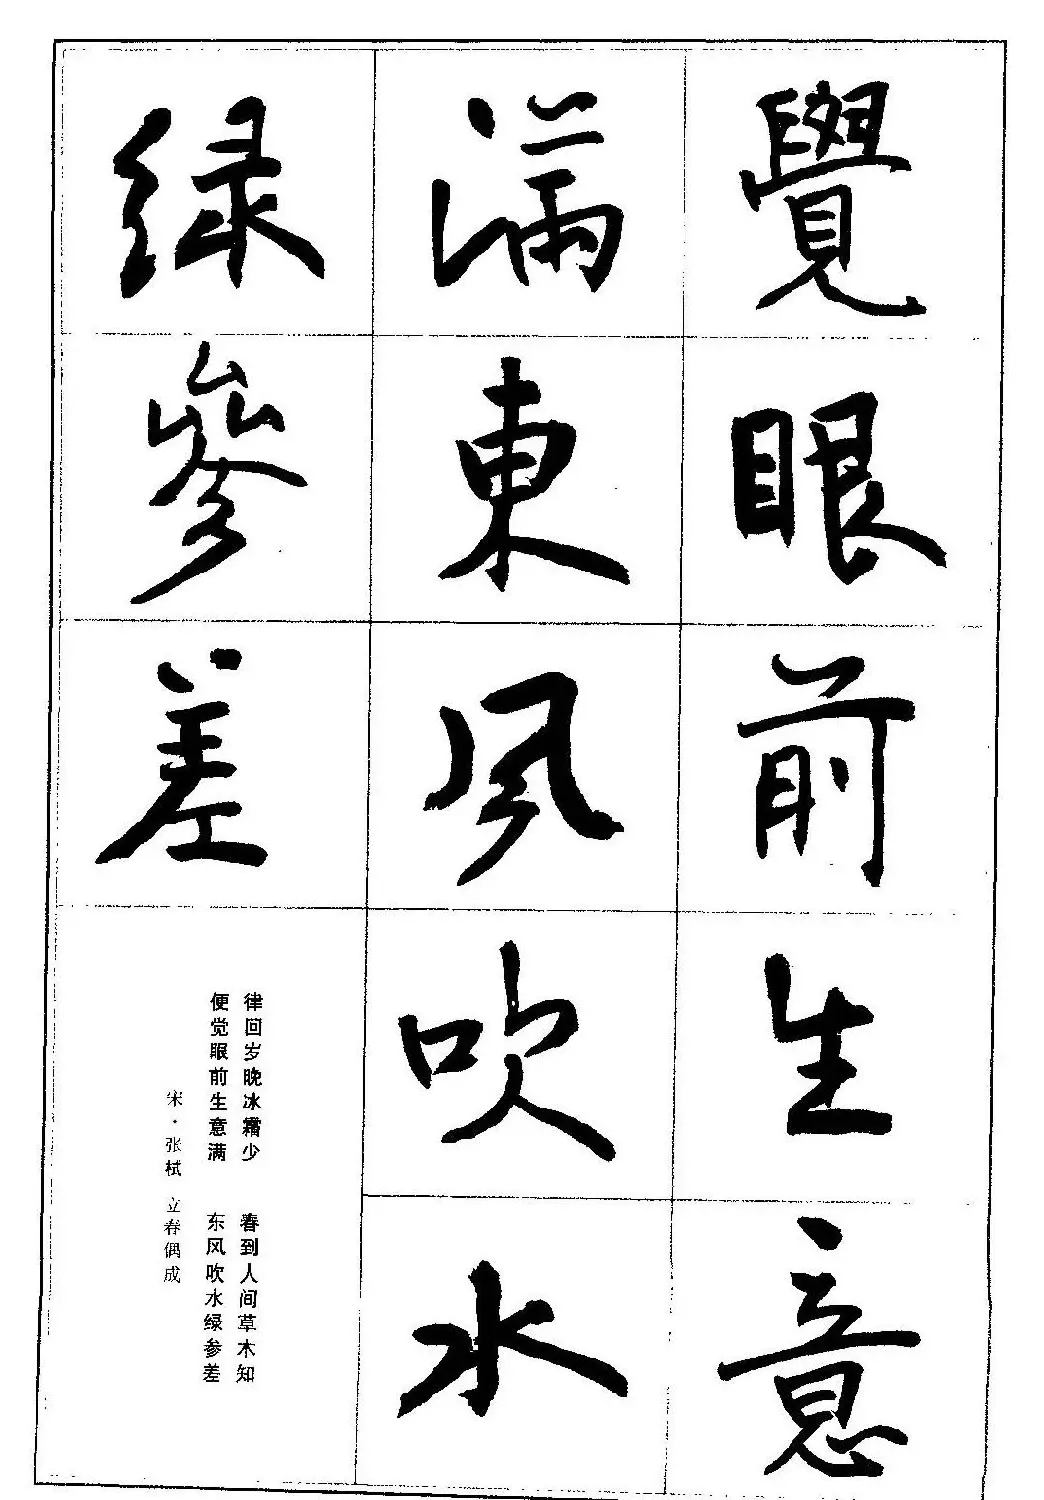 覺眼前生意
滿東風吹水
緑參差
律回岁晚冰霜少 春到人间草木知
便觉眼前生意满 东风吹水绿参差
宋·张栻 立春偶成